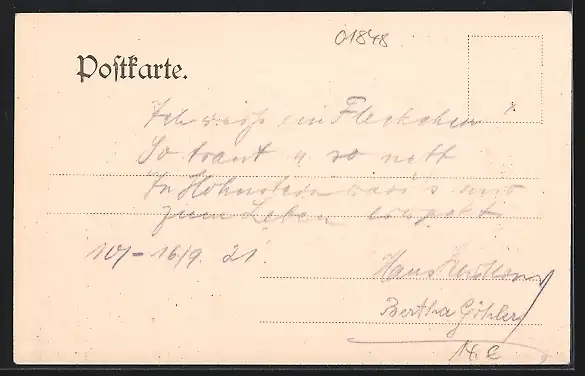 01848
Postkarte.
Ich weiss ein Fleckchen
So traut u so nett
In Hohnstein wars nur
zum Leben
10/ - 16/9. 21.
Hans
Bertha Göhler
14.-€